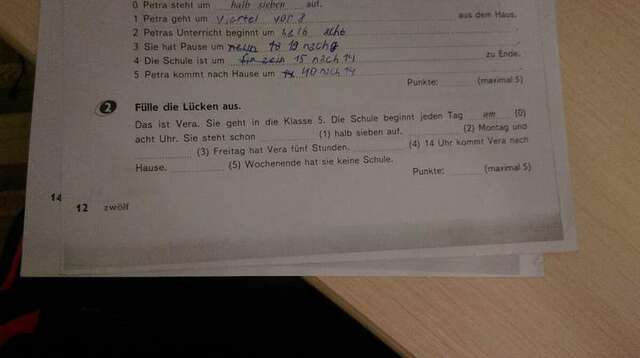 0 Petra steht um halb sieben auf.
1 Petra geht um Viertel vor 8 aus dem Haus.
2 Petras Unterricht beginnt um halb
3 Sie hat Pause um 19 nach 9
4 Die Schule ist um 15 nach 14 zu Ende.
5 Petra kommt nach Hause um 40 nach 14
Punkte: (maximal 5)
2 Fülle die Lücken aus.
Das ist Vera. Sie geht in die Klasse 5. Die Schule beginnt jeden Tag um (0)
acht Uhr. Sie steht schon (1) halb sieben auf. (2) Montag und
(3) Freitag hat Vera fünf Stunden. (4) 14 Uhr kommt Vera nach
Hause. (5) Wochenende hat sie keine Schule.
Punkte: (maximal 5)
14
12 zwölf